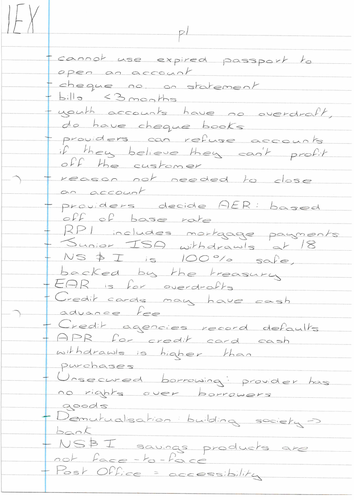 1EX
p1
- cannot use expired passport to
open an account
- cheque no. on statement
- bills <3months
- youth accounts have no overdraft,
do have cheque books
- providers can refuse accounts
if they believe they can't profit
off the customer
- reason not needed to close
an account
- providers decide AER: based
off of base rate
- RPI includes mortgage payments
- Junior ISA withdrawls at 18
- NS&I is 100% safe,
backed by the treasury
- EAR is for overdrafts
- Credit cards may have cash
advance fee
- Credit agencies record defaults
- APR for credit card cash
withdrawls is higher than
purchases
- Unsecured borrowing: provider has
no rights over borrowers
goods
- Demutualisation building society →
bank
- NS&I savings products are
not face-to-face
- Post Office = accessibility